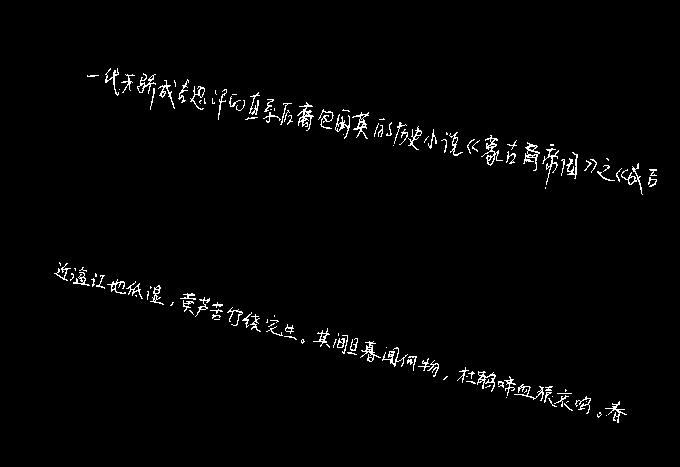 一代天骄成吉思汗的直系后裔包国英的历史小说《蒙古商帝国》之《成吉
近湓江地低湿，黄芦苦竹绕宅生。其间旦暮闻何物，杜鹃啼血猿哀鸣。春